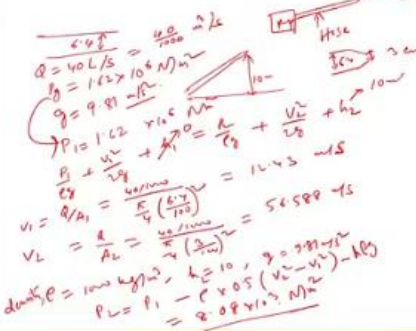 6.4
Q = 40 L/s = 40/1000 m³/s
Pg = 1.62 × 10⁶ N/m²
g = 9.81 m/s²
P₁ = 1.62 × 10⁶ N/m²
Hose
10m
6.4
3 cm
P₁/ρg + V₁²/2g + h₁⁰ = P₂/ρg + V₂²/2g + h₂ → 10m
V₁ = Q/A₁ = 40/1000 / π/4 (6.4/100)² = 12.43 m/s
V₂ = Q/A₂ = 40/1000 / π/4 (3/100)² = 56.588 m/s
density, ρ = 1000 kg/m³, h₂ = 10, g = 9.81 m/s²
P₂ = P₁ - ρ × 0.5 (V₂² - V₁²) - hρg
= 8.08 × 10³ N/m²